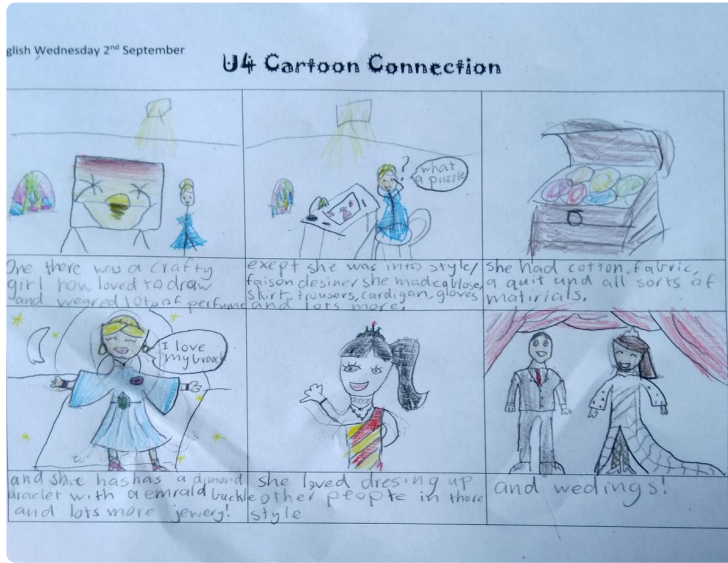 glish Wednesday 2nd September
U4 Cartoon Connection
what
a puzzle
?
One there was a crafty
girl how loved to draw
and weared lots of perfume
exept she was into style/
faison desiner she mad a blose,
skirt, trousers, cardigan, gloves
and lots more!
she had cotton, fabric,
a quit and all sorts of
matirials.
I love
my brooch
and shhe hashas a dimond
braclet with a emrald buckle
and lots more jewery!
she loved dresing up
other people in there
style
and wedings!